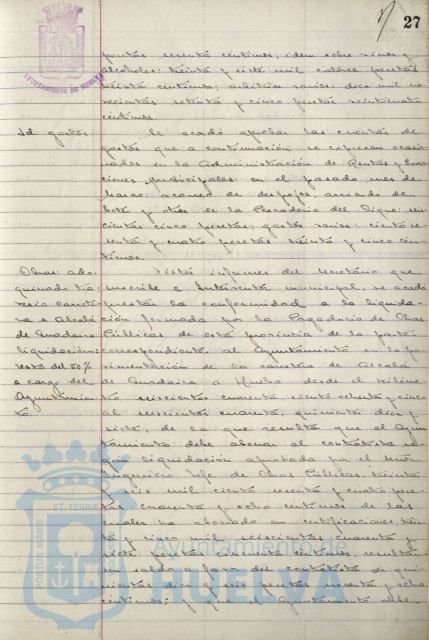 27
AYUNTAMIENTO DE HUELVA
pesetas sesenta céntimos; idem sobre vinos y
alcoholes: treinta y siete mil catorce pesetas
treinta céntimos; arbitrios varios: doce mil no-
vecientas setenta y cinco pesetas veinticuatro
céntimos.
Id gastos
Se acordó aprobar las cuentas de
gastos que a continuación se expresan ocasio-
nados en la Administración de Rentas y Exac-
ciones municipales en el pasado mes de
Marzo: acarreo de despojos, arriendo de
y otros de la Pescadería del Dique: seis-
cientas cinco pesetas; gastos varios: ciento se-
senta y cuatro pesetas treinta y cinco cén-
timos.
Obras: ado-
quinado tra-
vesía carrete-
ra a Alcalá
de Guadaira
liquidación:
resto del 50%
a cargo del
Ayuntamien-
to.
Vistos informes del Secretario que
suscribe e Interventor municipal, se acordó
prestar la conformidad a la liquida-
ción formada por la Pagaduría de Obras
Públicas de esta provincia de la parte
correspondiente al Ayuntamiento en la pa-
vimentación de la carretera de Alcalá
de Guadaira a Huelva desde el kilóme-
tro seiscientos cuarenta, ciento ochenta y cinco
al seiscientos cuarenta, quinientos diez y
siete, de la que resulta que el Ayun-
tamiento debe abonar al contratista se-
gún liquidación aprobada por el Señor
Ingeniero Jefe de Obras Públicas treinta
y seis mil ciento sesenta y cuatro pese-
tas cuarenta y ocho céntimos de las
cuales ha abonado en certificaciones trein-
ta y cinco mil seiscientas cuarenta y
siete pesetas cincuenta céntimos, resultan-
do un saldo a favor del contratista de qui-
nientas diez y seis pesetas noventa y ocho
céntimos; y que el Ayuntamiento debe
PORTUS MARIS ET TERRÆ
Ayuntamiento de
HUELVA